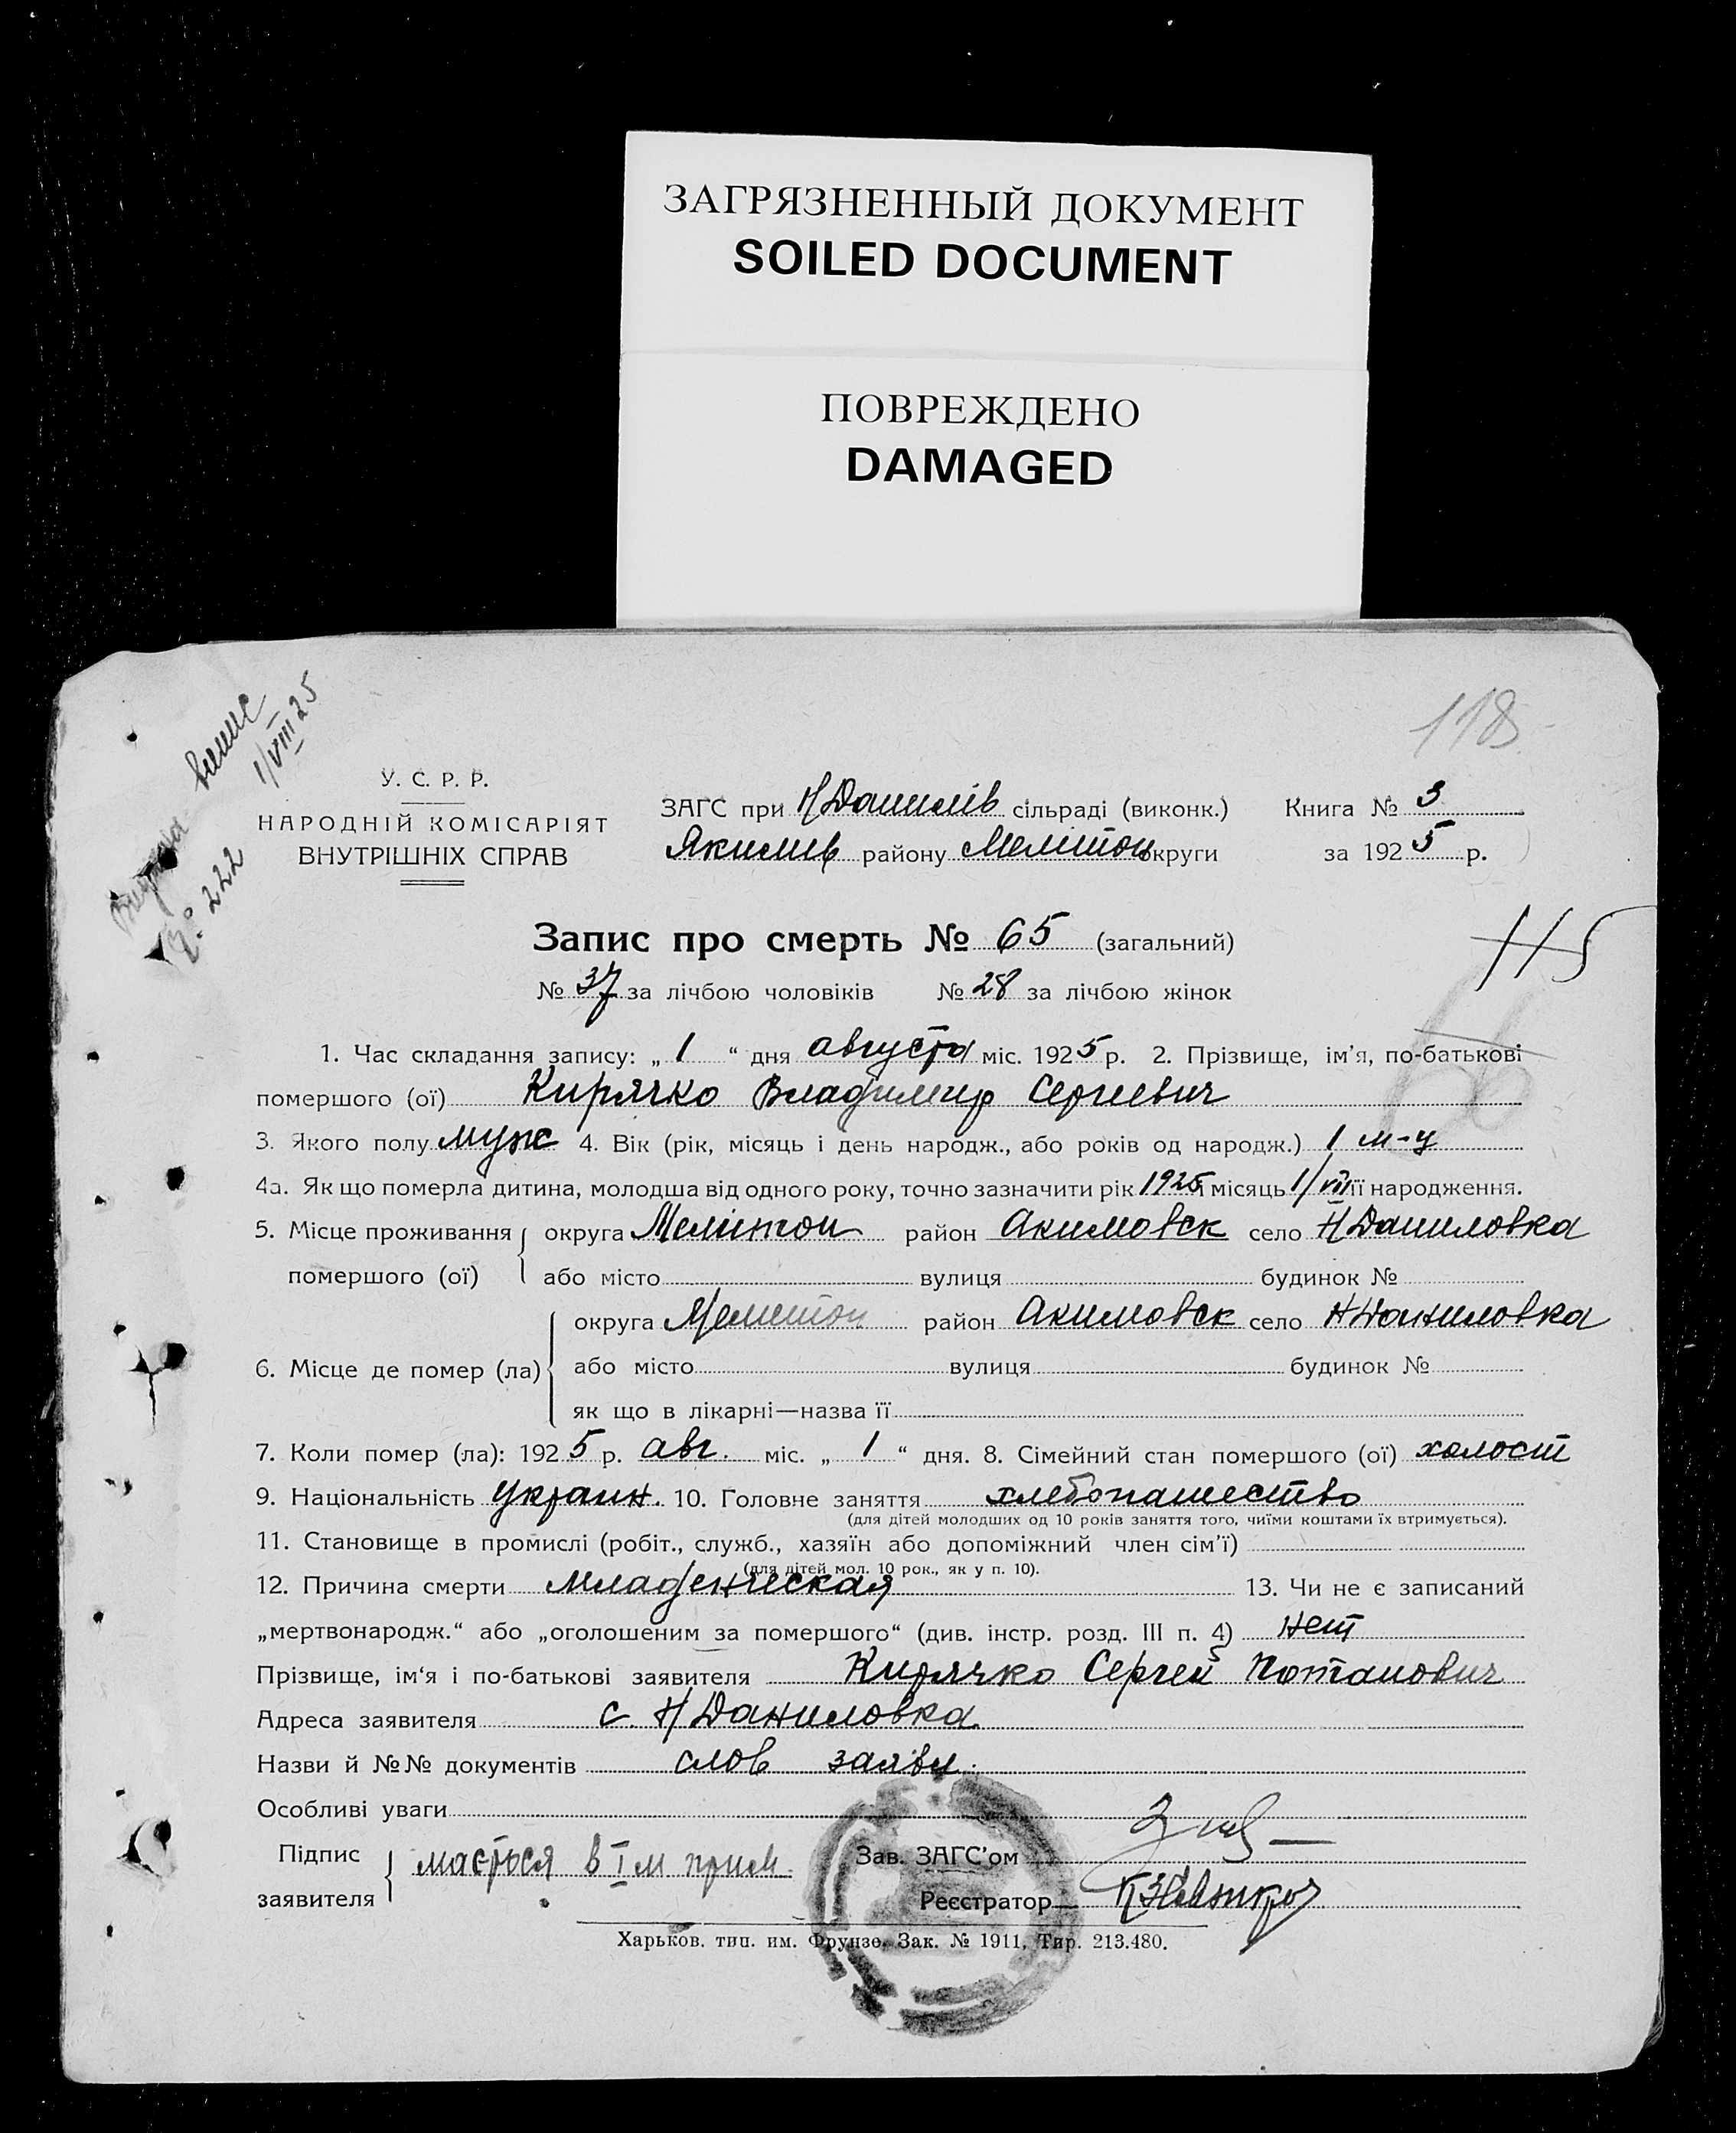 ЗАГРЯЗНЕННЫЙ ДОКУМЕНТ
SOILED DOCUMENT
ПОВРЕЖДЕНО
DAMAGED
118
випис
1/VIII 25
№ 222
У. С. Р. Р.
НАРОДНІЙ КОМІСАРІЯТ
ВНУТРІШНІХ СПРАВ
ЗАГС при Н Данилів сільраді (виконк.) Книга № 3
Якимив району Мелітоп округи за 1925 р.
Запис про смерть № 65 (загальний)
115
№ 37 за лічбою чоловіків № 28 за лічбою жінок
66
1. Час складання запису: „ 1 “ дня августа міс. 1925 р. 2. Прізвище, ім’я, по-батькові
помершого (ої) Кирячко Владимир Сергиевич
3. Якого полу муж 4. Вік (рік, місяць і день народж., або років од народж.) 1 м-ц
4а. Як що померла дитина, молодша від одного року, точно зазначити рік 1925 і місяць 1/VII її народження.
5. Місце проживання округа Мелітоп район Акимовск село Н Даниловка
помершого (ої) або місто вулиця будинок №
округа Мелитоп район Акимовск село Н Даниловка
6. Місце де помер (ла) або місто вулиця будинок №
як що в лікарні—назва її
7. Коли помер (ла): 1925 р. авг. міс. „ 1 “ дня. 8. Сімейний стан помершого (ої) холост
9. Національність украин. 10. Головне заняття хлебопашество
(для дітей молодших од 10 років заняття того, чиїми коштами їх втримується).
11. Становище в промислі (робіт., служб., хазяїн або допоміжний член сім’ї)
(для дітей мол. 10 рок., як у п. 10).
12. Причина смерти младенческая 13. Чи не є записаний
„мертвонародж.“ або „оголошеним за помершого“ (див. інстр. розд. III п. 4) нет
Прізвище, ім‘я і по-батькові заявителя Кирячко Сергей Потапович
Адреса заявителя с. Н Даниловка
Назви й №№ документів слов заявл.
Особливі уваги
Підпис мається в I м прим. Зав. ЗАГС’ом
заявителя Реєстратор
Харьков. тип. им. Фрунзе. Зак. № 1911, Тир. 213.480.